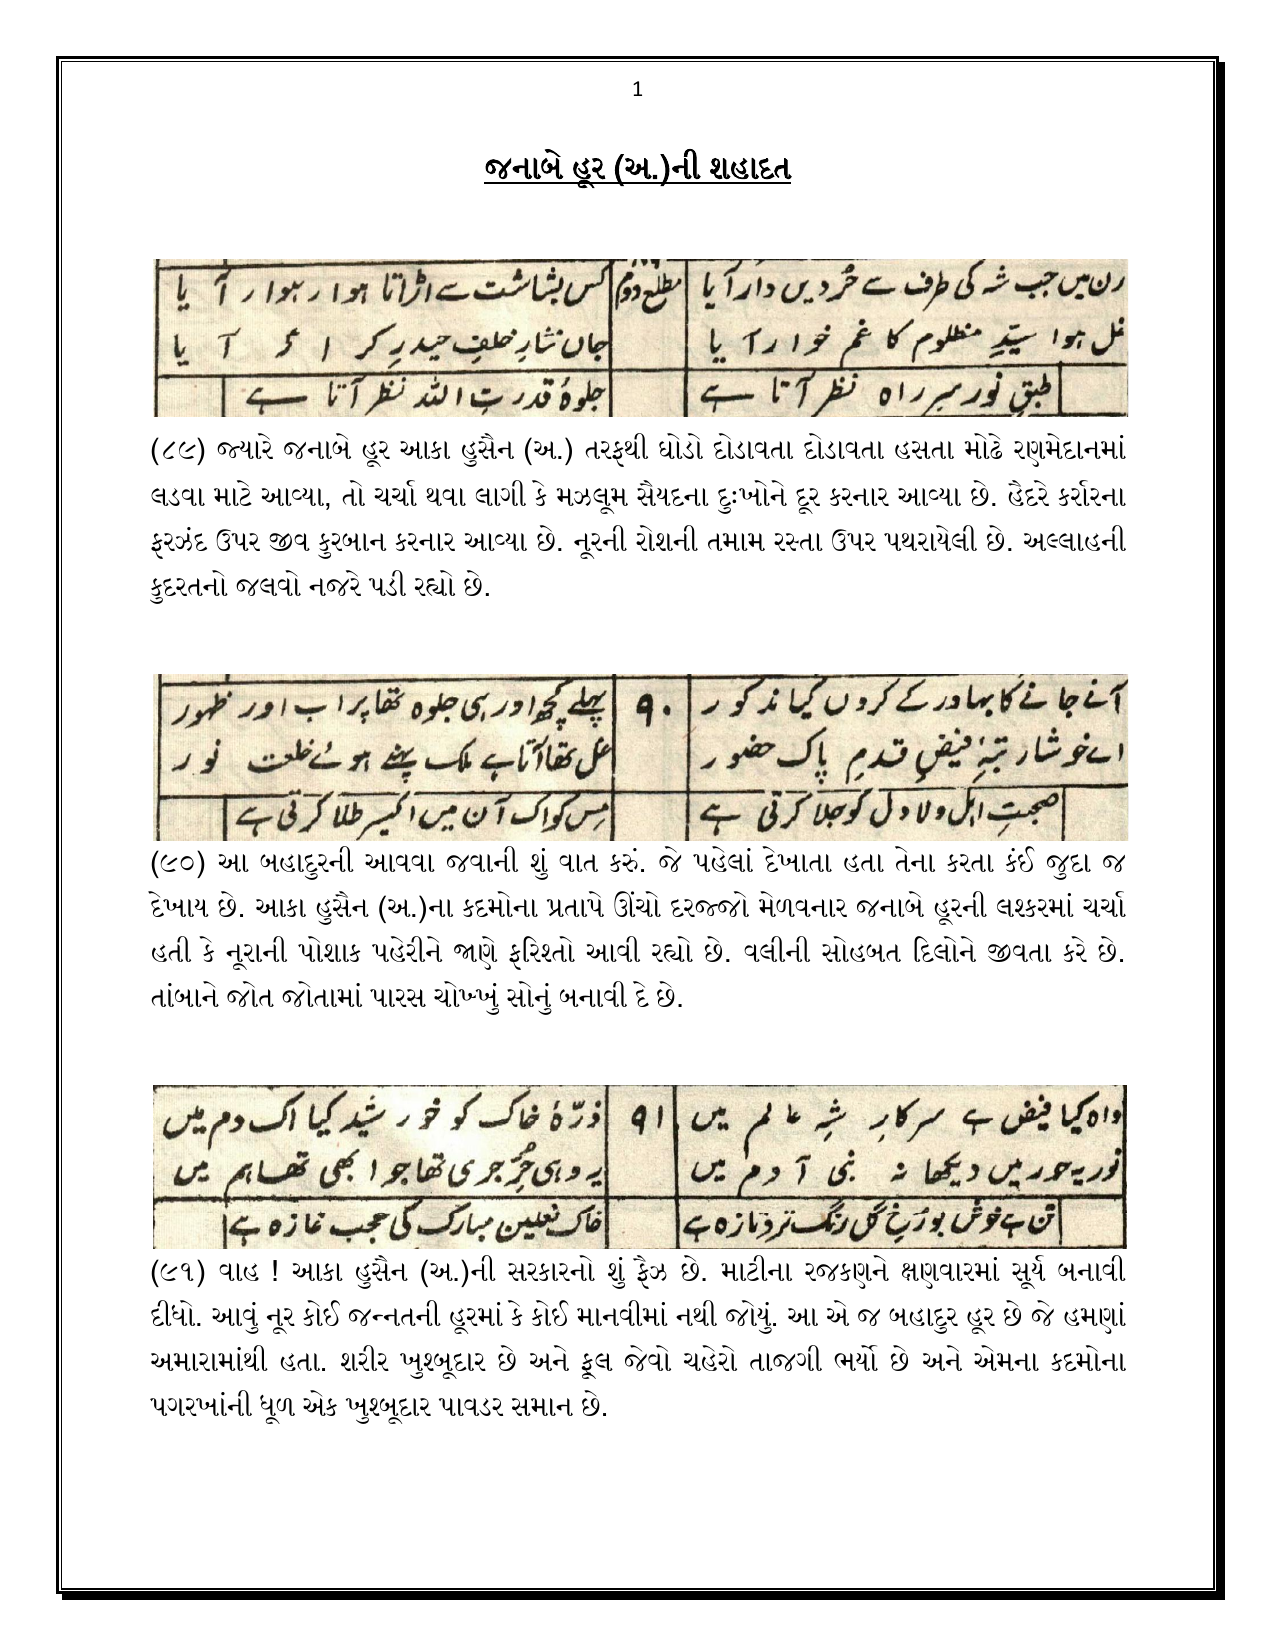 1
જનાબે હૂર (અ.)ની શહાદત
رن میں جب شہ کی طرف سے حُرِ دیں دار آیا مطلع دوم کس بشاشت سے اڑاتا ہوا رہوار آیا
غل ہوا سیّدِ مظلوم کا غم خوار آیا جاں نثارِ خلفِ حیدرِ کرار آیا
طبقِ نور سرِ راہ نظر آتا ہے جلوۂ قدرتِ اللہ نظر آتا ہے
(૮૯) જ્યારે જનાબે હૂર આકા હુસૈન (અ.) તરફથી ઘોડો દોડાવતા દોડાવતા હસતા મોઢે રણમેદાનમાં
લડવા માટે આવ્યા, તો ચર્ચા થવા લાગી કે મઝલૂમ સૈયદના દુઃખોને દૂર કરનાર આવ્યા છે. હૈદરે કર્રારના
ફરઝંદ ઉપર જીવ કુરબાન કરનાર આવ્યા છે. નૂરની રોશની તમામ રસ્તા ઉપર પથરાયેલી છે. અલ્લાહની
કુદરતનો જલવો નજરે પડી રહ્યો છે.
آنے جانے کا بہادر کے کروں کیا مذکور ۹۰ پہلے کچھ اور ہی جلوہ تھا پر اب اور ظہور
اے خوشا رتبۂ فیضِ قدمِ پاک حضور غل تھا آتا ہے ملک پہنے ہوئے خلعت نور
صحبتِ اہل ولا دل کو جلا کرتی ہے مِس کو اک آن میں اکسیر طلا کرتی ہے
(૯૦) આ બહાદુરની આવવા જવાની શું વાત કરું. જે પહેલાં દેખાતા હતા તેના કરતા કંઈ જુદા જ
દેખાય છે. આકા હુસૈન (અ.)ના કદમોના પ્રતાપે ઊંચો દરજ્જો મેળવનાર જનાબે હૂરની લશ્કરમાં ચર્ચા
હતી કે નૂરાની પોશાક પહેરીને જાણે ફરિશ્તો આવી રહ્યો છે. વલીની સોહબત દિલોને જીવતા કરે છે.
તાંબાને જોત જોતામાં પારસ ચોખ્ખું સોનું બનાવી દે છે.
واہ کیا فیض ہے سرکارِ شہِ عالم میں ۹۱ ذرّۂ خاک کو خورشید کیا اک دم میں
نور یہ حور میں دیکھا نہ بنی آدم میں یہ وہی حُرِّ جری تھا جو ابھی تھا ہم میں
تن ہے خوش بو رُخِ گل رنگ تر و تازہ ہے خاک نعلین مبارک کی عجب غازہ ہے
(૯૧) વાહ ! આકા હુસૈન (અ.)ની સરકારનો શું ફૈઝ છે. માટીના રજકણને ક્ષણવારમાં સૂર્ય બનાવી
દીધો. આવું નૂર કોઈ જન્નતની હૂરમાં કે કોઈ માનવીમાં નથી જોયું. આ એ જ બહાદુર હૂર છે જે હમણાં
અમારામાંથી હતા. શરીર ખુશ્બૂદાર છે અને ફૂલ જેવો ચહેરો તાજગી ભર્યો છે અને એમના કદમોના
પગરખાંની ધૂળ એક ખુશ્બૂદાર પાવડર સમાન છે.